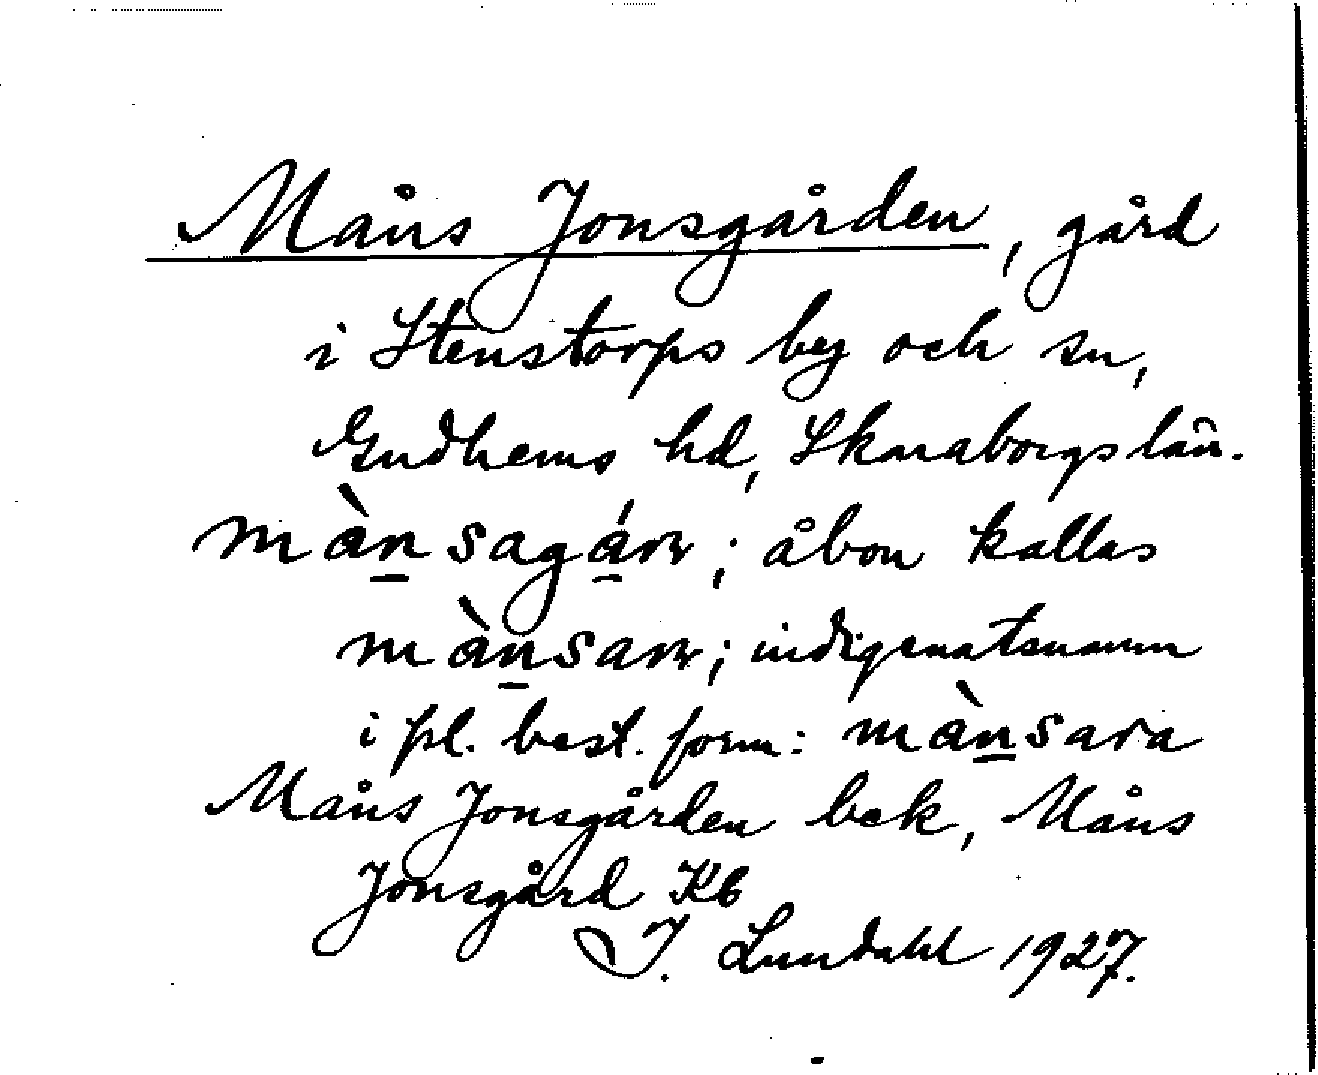 Måns Jonsgården, gård
i Stenstorps by och sn,
Gudhems hd, Skaraborgs län.
mànsagár; åbon kallas
mànsar; indigenatsnamn
i pl. best. form: mànsara
Måns Jonsgården bek, Måns
Jonsgård Kb
I. Lundahl 1927.